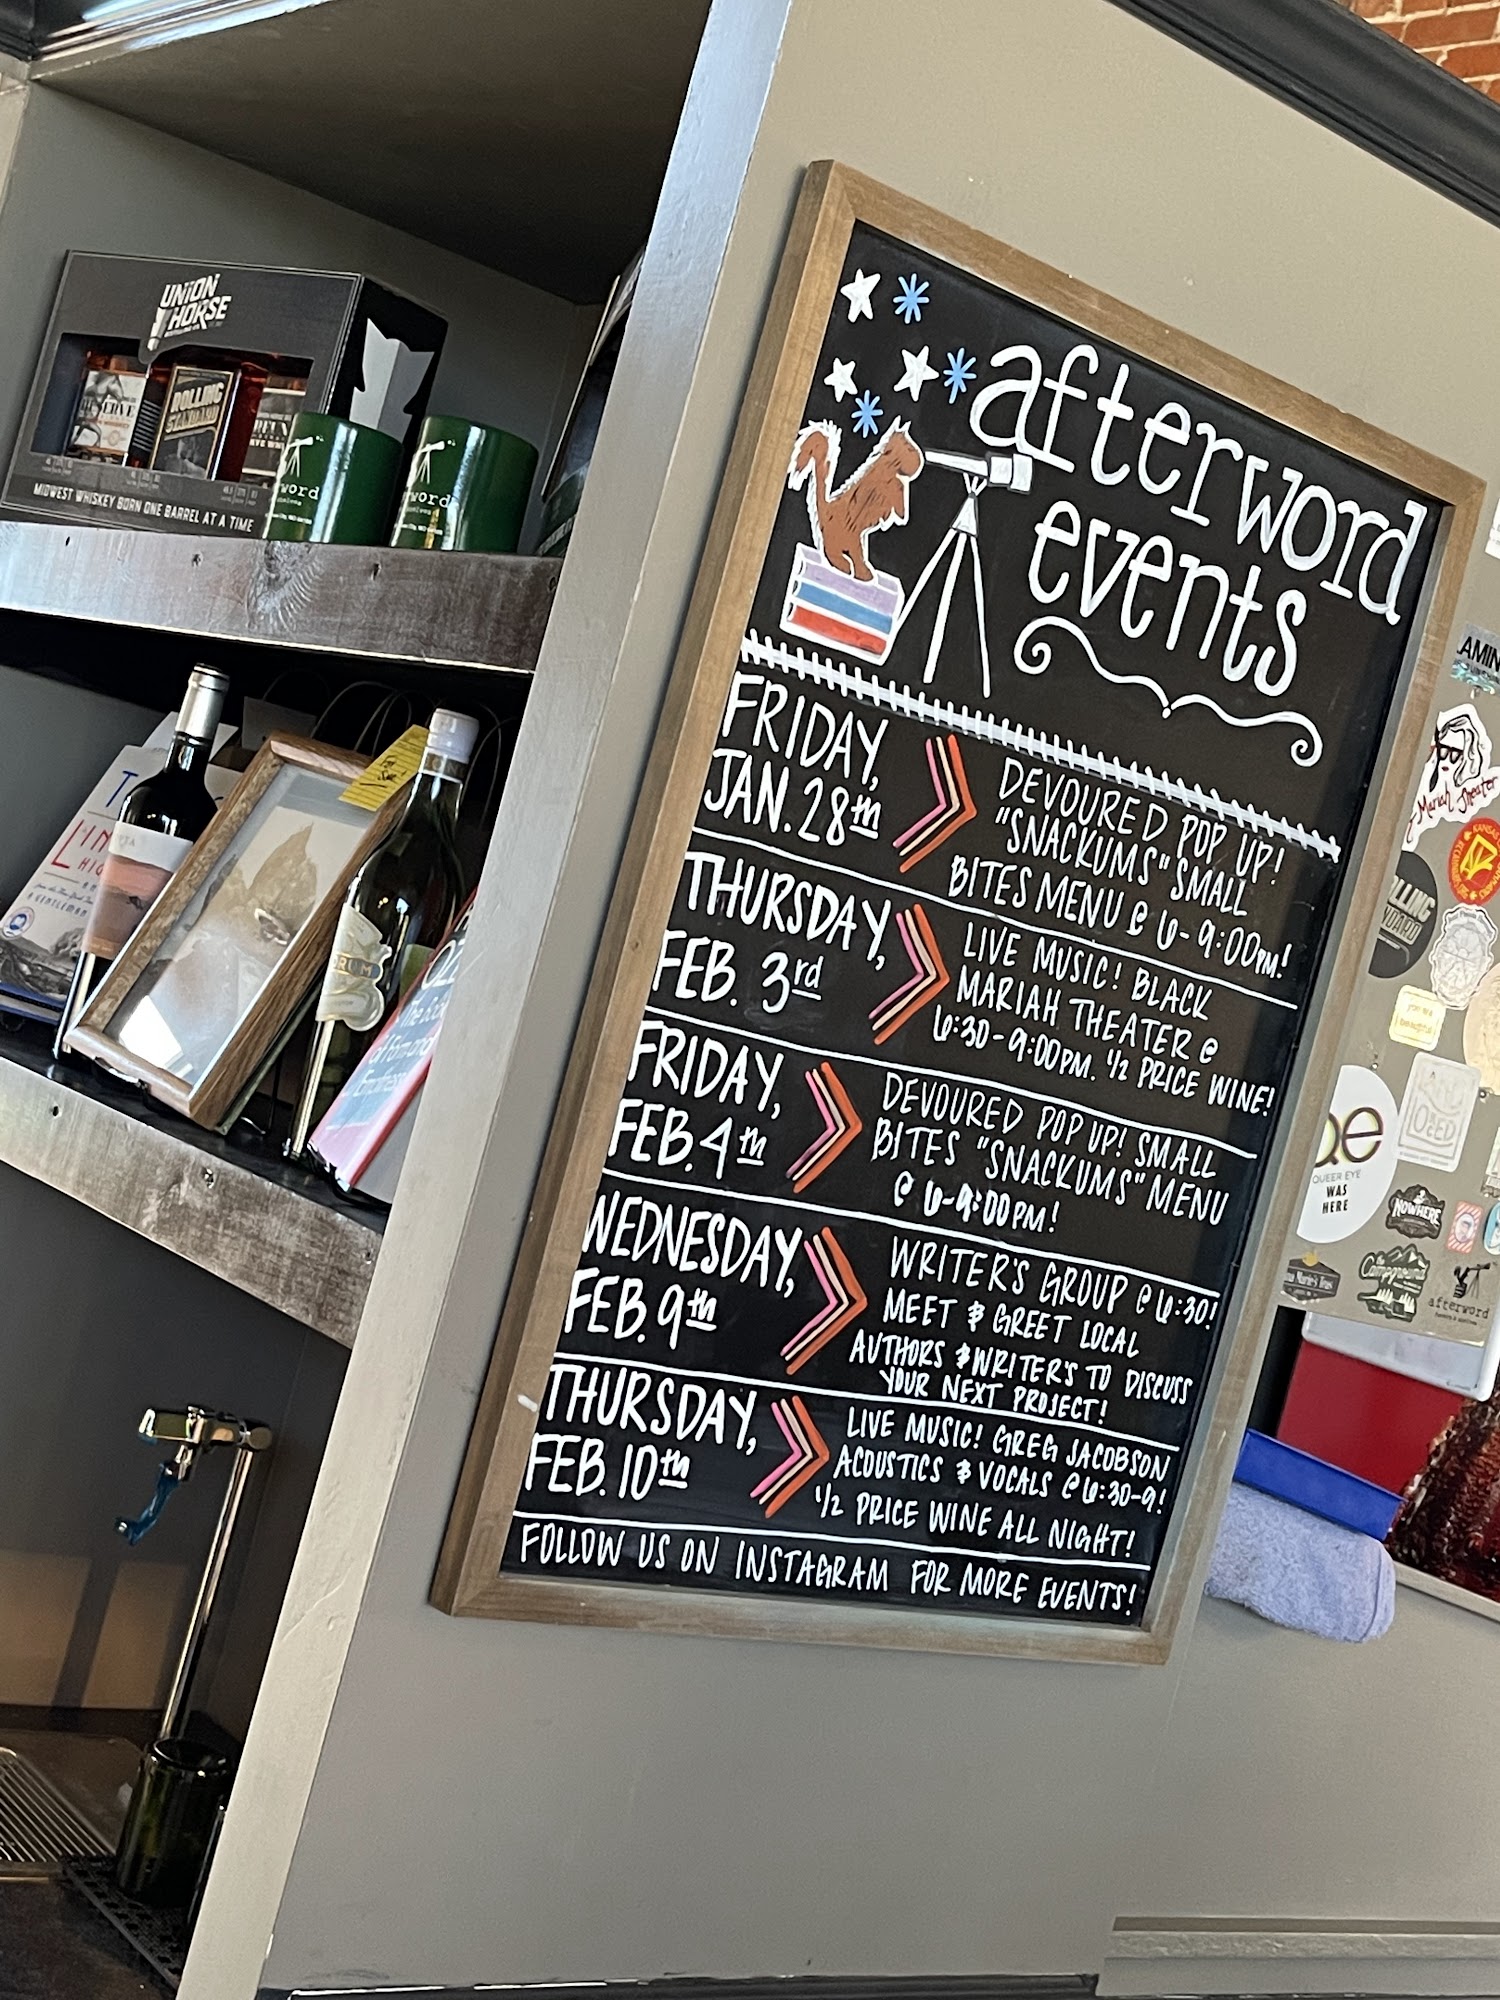 afterword
events
FRIDAY,
JAN. 28th
DEVOURED POP UP!
"SNACKUMS" SMALL
BITES MENU @ 6-9:00PM!
THURSDAY,
FEB. 3rd
LIVE MUSIC! BLACK
MARIAH THEATER @
6:30-9:00PM. 1/2 PRICE WINE!
FRIDAY,
FEB. 4th
DEVOURED POP UP! SMALL
BITES "SNACKUMS" MENU
@ 6-9:00PM!
WEDNESDAY,
FEB. 9th
WRITER'S GROUP @ 6:30!
MEET & GREET LOCAL
AUTHORS & WRITER'S TO DISCUSS
YOUR NEXT PROJECT!
THURSDAY,
FEB. 10th
LIVE MUSIC! GREG JACOBSON
ACOUSTICS & VOCALS @ 6:30-9!
1/2 PRICE WINE ALL NIGHT!
FOLLOW US ON INSTAGRAM FOR MORE EVENTS!
UNION
HORSE
ROLLING
STANDARD
MIDWEST WHISKEY BORN ONE BARREL AT A TIME
word
word
RUM
Mariah Theater
you are
beautiful
QUEER EYE
WAS
HERE
NOWHERE
afterword